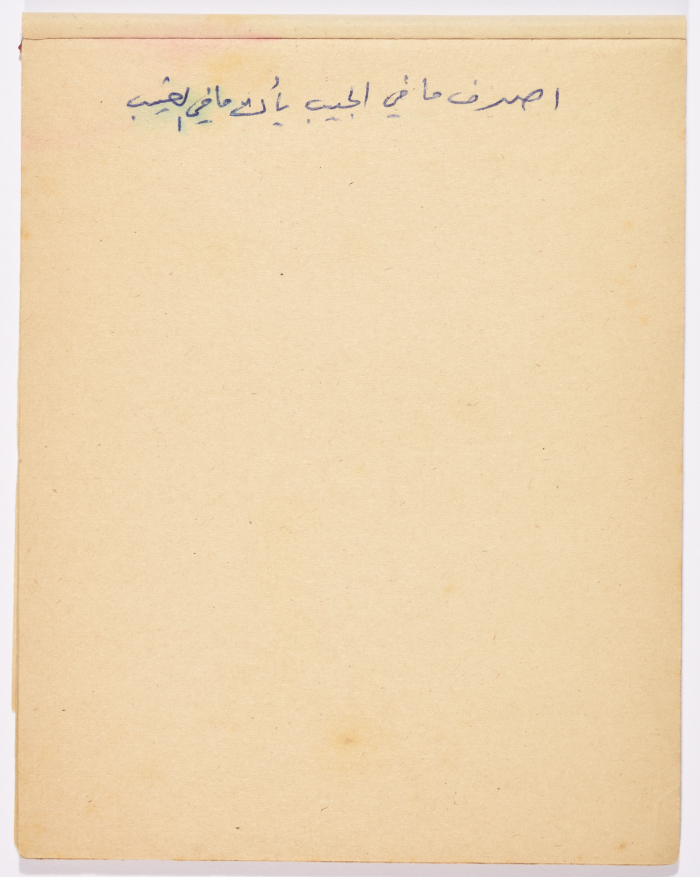 اصرف ما في الجيب يأتيك ما في الغيب